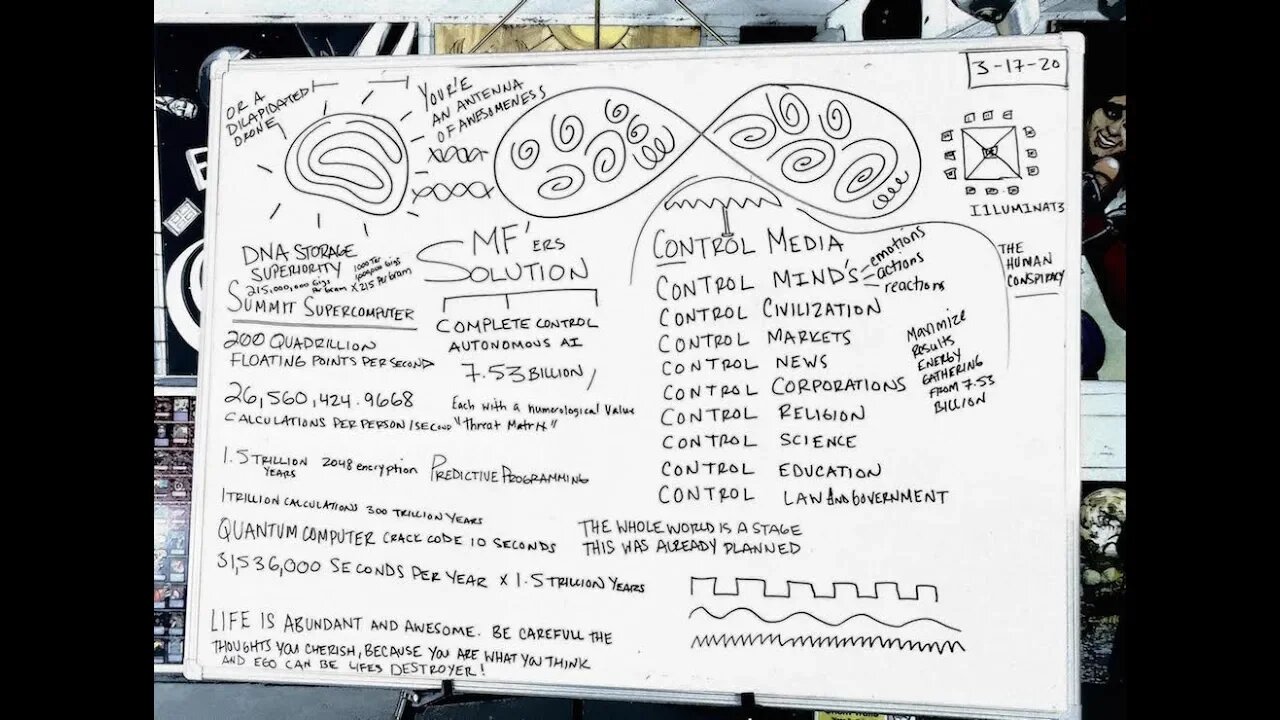 3-17-20
OR A
DILAPIDATED
DRONE
YOUR'E
AN ANTENNA
OF AWESOMENESS
ILLUMINATS
THE
HUMAN
CONSPIRACY
DNA STORAGE
SUPERIORITY
215,000,000 Gigs
Per Gram X 215 Per Gram
SUMMIT SUPERCOMPUTER
200 QUADRILLION
FLOATING POINTS PER SECOND
26,560,424.9668
CALCULATIONS PER PERSON/SECOND
1.5 TRILLION
YEARS
2048 encryption
1 TRILLION CALCULATIONS 300 TRILLION YEARS
QUANTUM COMPUTER CRACK CODE 10 SECONDS
31,536,000 SECONDS PER YEAR X 1.5 TRILLION YEARS
LIFE IS ABUNDANT AND AWESOME. BE CAREFULL THE
THOUGHTS YOU CHERISH, BECAUSE YOU ARE WHAT YOU THINK
AND EGO CAN BE LIFES DESTROYER!
MF'ERS
SOLUTION
COMPLETE CONTROL
AUTONOMOUS AI
7.53 BILLION /
Each with a numerological Value
"Threat Matrix"
PREDICTIVE PROGRAMMING
CONTROL MEDIA
CONTROL MIND'S
emotions
actions
reactions
CONTROL CIVILIZATION
CONTROL MARKETS
CONTROL NEWS
CONTROL CORPORATIONS
CONTROL RELIGION
CONTROL SCIENCE
CONTROL EDUCATION
CONTROL LAW AND GOVERNMENT
MAXIMIZE
RESULTS
ENERGY
GATHERING
FROM 7.53
BILLION
THE WHOLE WORLD IS A STAGE
THIS WAS ALREADY PLANNED